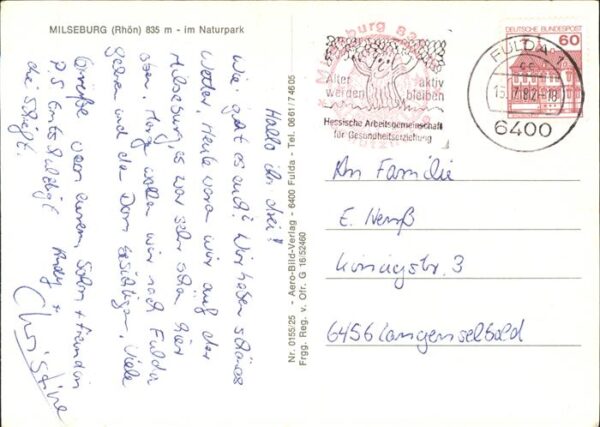 MILSEBURG (Rhön) 835 m - im Naturpark
Hallo ihr drei!
Wie geht es euch? Wir haben schönes
Wetter. Heute waren wir auf der
Milseburg, es war sehr schön hier
oben. Morgen wollen wir nach Fulda
gehen und den Dom besichtigen. Viele
Grüße von eurem Sohn + Freundin
Andy +
Christine
P.S. Entschuldigt
die Schrift.
Nr. 0155/25 - Aero-Bild-Verlag - 6400 Fulda - Tel. 0661/7 46 05
Frgg. Reg. v. Ofr. G 16/52460
Milseburg 83
Alter aktiv
werden bleiben
Hessische Arbeitsgemeinschaft
für Gesundheitserziehung
FULDA 1
6400
DEUTSCHE BUNDESPOST
60
An Familie
E.
Königstr. 3
6456 Langenselbold